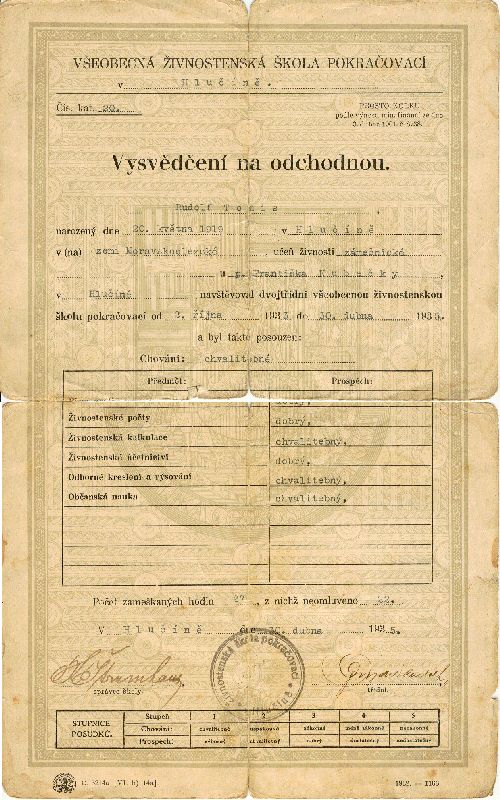 VŠEOBECNÁ ŽIVNOSTENSKÁ ŠKOLA POKRAČOVACÍ
v Hlučíně.
Čís. kat. 20.
PROSTO KOLKU
podle výnosu min. financí ze dne
Vysvědčení na odchodnou.
Rudolf
narozený dne 20. května 1919 v Hlučíně
v (na) zemi Moravskoslezské učeň živnosti zámečnické
u p. Františka Kubučky,
v Hlučíně navštěvoval dvojtřídní všeobecnou živnostenskou
školu pokračovací od 2. října 1933 do 30. dubna 1935.
a byl takto posouzen:
Chování: chvalitebné
Předmět: Prospěch:
dobrý,
Živnostenské počty dobrý,
Živnostenská kalkulace chvalitebný,
Živnostenské účetnictví dobrý,
Odborné kreslení a rýsování chvalitebný,
Občanská nauka chvalitebný,
Počet zameškaných hodin 27 , z nichž neomluveno 22.
V Hlučíně dne 30. dubna 1935.
živnostenská škola pokračovací
v Hlučíně
správce školy. třídní.
STUPNICE POSUDKŮ.
Stupeň 1 2 3 4 5
Chování: chvalitebné uspokojivé zákonné méně zákonné nezákonné
Prospěch: výborný chvalitebný dobrý dostatečný nedostatečný